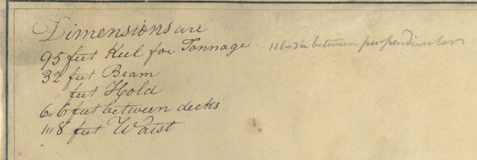 Dimensions are
95 feet Keel for Tonnage 116 " 3 in between perpendiculars
32 feet Beam
feet Hold
6 " 6 feet between decks
1 " 8 feet Waist